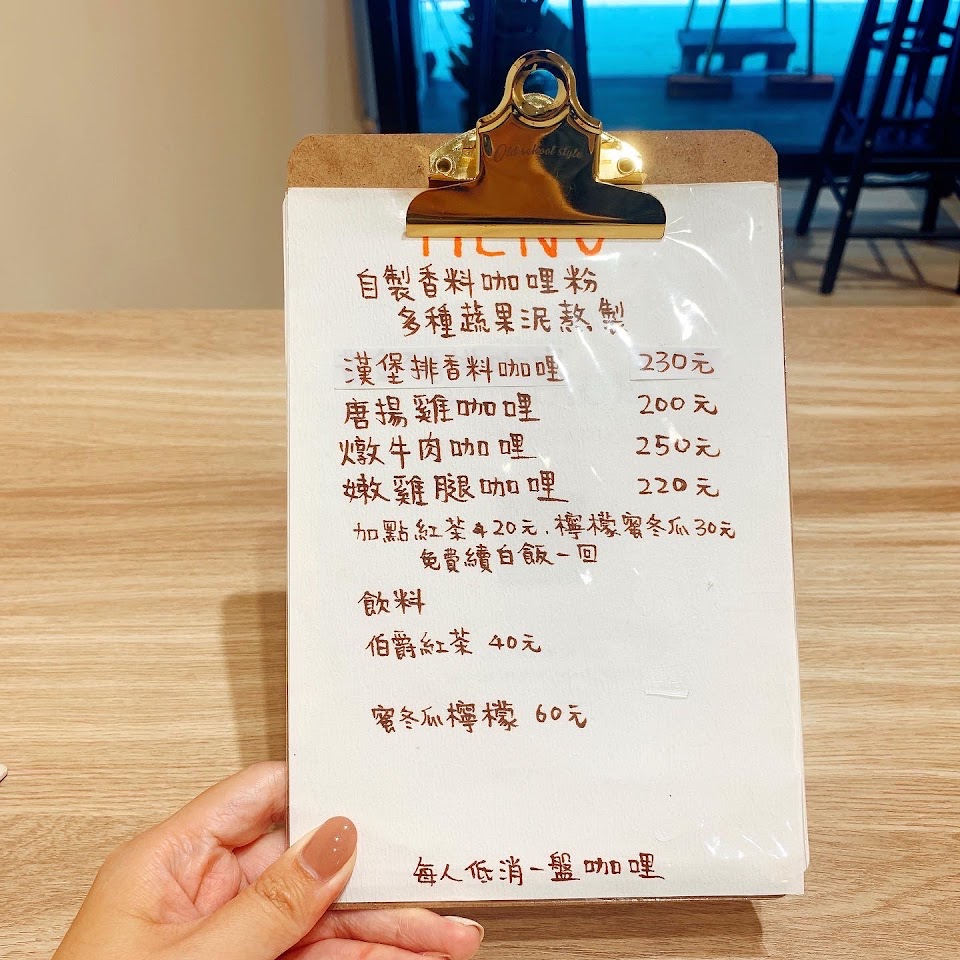 Old school style
MENU
自製香料咖哩粉
多種蔬果泥熬製
漢堡排香料咖哩 230元
唐揚雞咖哩 200元
燉牛肉咖哩 250元
嫩雞腿咖哩 220元
加點紅茶+20元、檸檬蜜冬瓜30元
免費續白飯一回
飲料
伯爵紅茶 40元
蜜冬瓜檸檬 60元
每人低消一盤咖哩